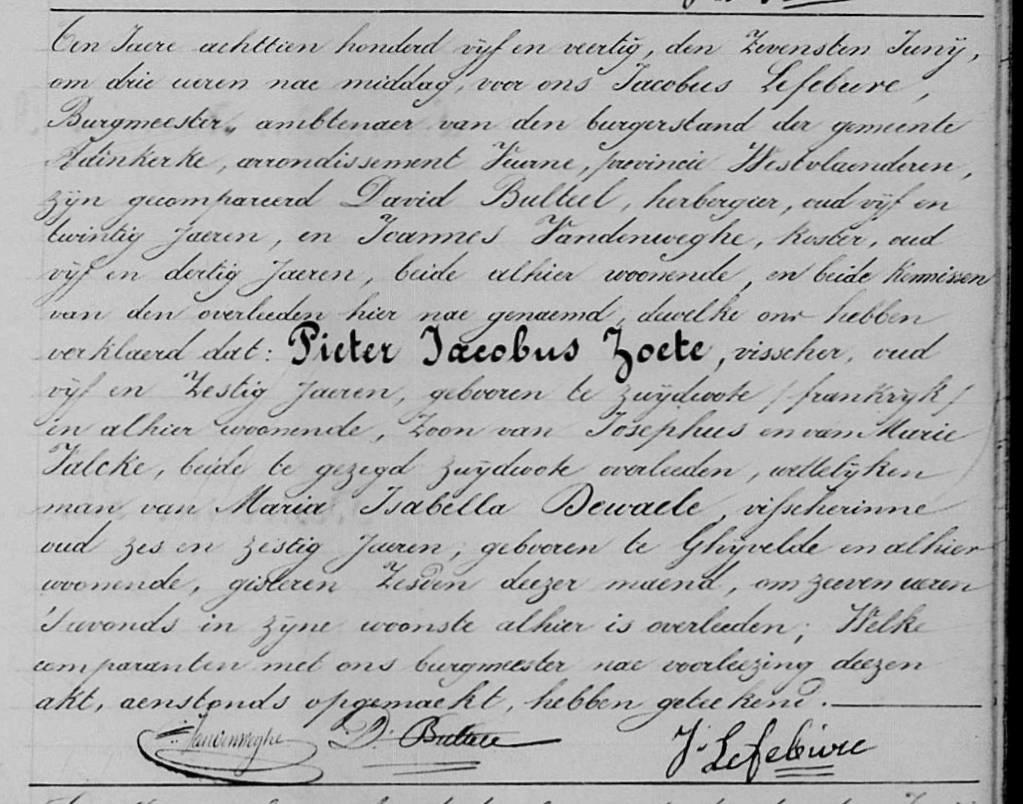 Ten Jaere achttien honderd vijf en veertig, den Zevensten Junij,
om drie ueren nae middag, voor ons Jacobus Lefebure,
Burgmeester, amblenaer van den burgerstand der gemeente
Adinkerke, arrondissement Veurne, provincie Westvlaenderen,
zijn gecompareerd David Bulteel, herbergier, oud vijf en
twintig Jaeren, en Joannes Vandenweghe, koster, oud
vijf en dertig Jaeren, beide alhier woonende, en beide kennissen
van den overleeden hier nae genaemd, dewelke ons hebben
verklaerd dat: Pieter Jacobus Zoete, visscher, oud
vijf en Zestig Jaeren, gebooren te Zuijdwote / frankrijk /
en alhier woonende, Zoon van Josephus en van Marie
Valcke, beide te gezegd Zuijdwote overleeden, wettelijken
man van Maria Isabella Dewaele, visscherinne
oud zes en zestig Jaeren, gebooren te Ghijvelde en alhier
woonende, gisteren Zesden deezer maend, om zeeven ueren
's avonds in zijne woonste alhier is overleeden; Welke
comparanten met ons burgmeester nae voorleezing deezen
akt, aenstonds opgemaekt, hebben geteekend.
Vandenweghe D. Bulteel J. Lefebure